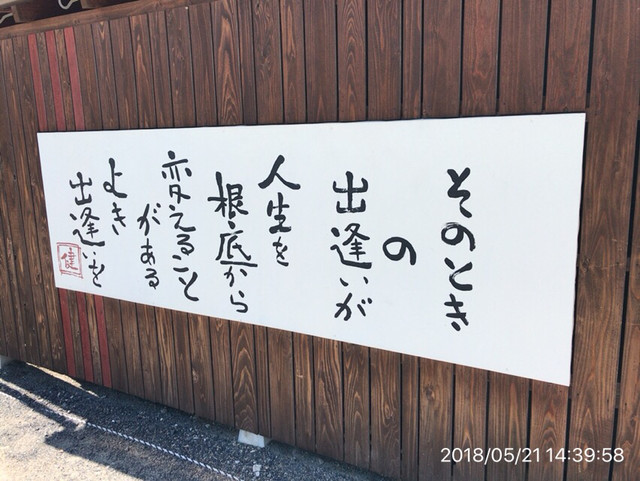 そのとき
の
出逢いが
人生を
根底から
変えること
がある
よき
出逢いを
2018/05/21 14:39:58